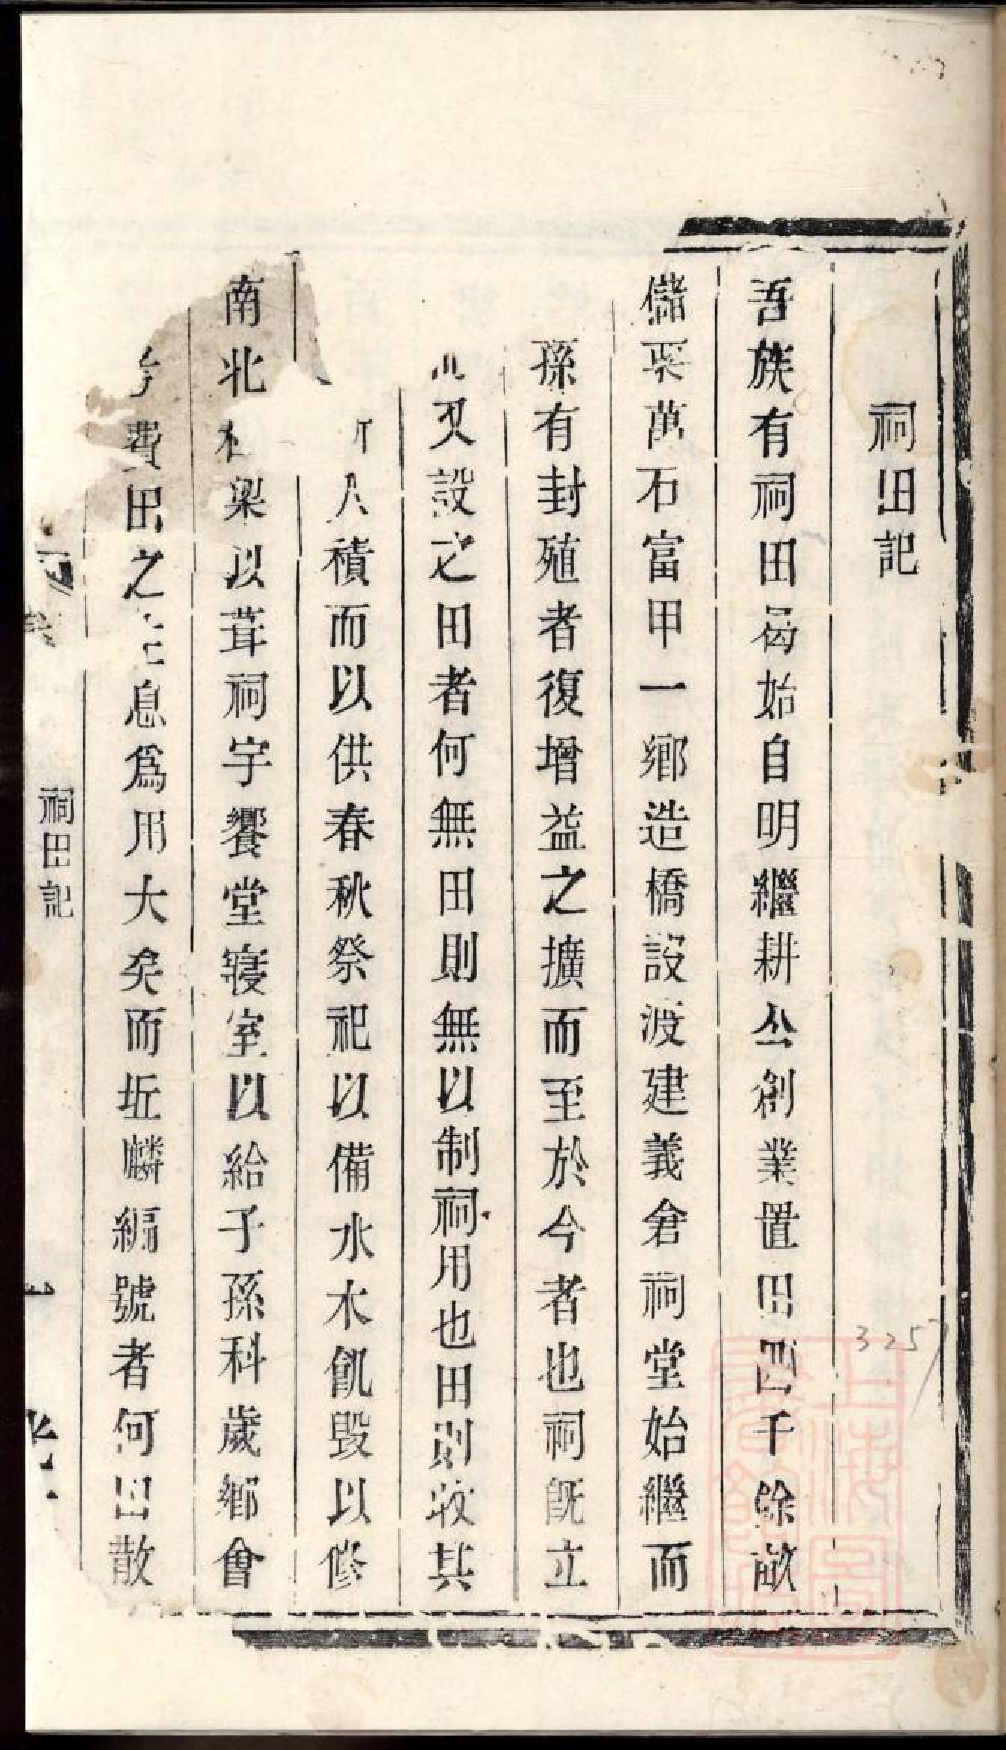 祠田記
吾族有祠田焉始自明繼耕公創業置田四千餘畝
儲粟萬石富甲一鄉造橋設渡建義倉祠堂始繼而
孫有封殖者復增益之擴而至於今者也祠既立
又設之田者何無田則無以制祠用也田則收其
人積而以供春秋祭祀以備水木飢毀以修
南北橋梁以葺祠宇饗堂寢室以給子孫科歲鄉會
費田之生息為用大矣而坵麟編號者何田散
祠田記
3257
上海圖書館藏